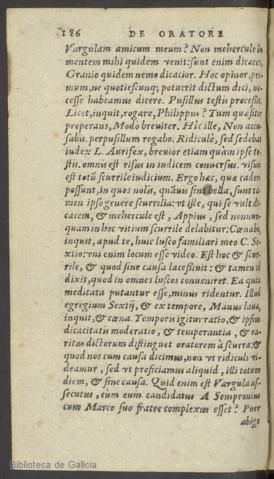 186 DE ORATORE
Vargulam amicum meum? Non mehercule in
mentem mihi quidem venit: sunt enim dicaces,
Granio quidem nemo dicacior. Hoc opinor, pri-
mum, ne quotiescunq; potuerit dictum dici, ne-
cesse habeamus dicere. Pusillus testis processit.
Licet, inquit, rogare, Philippus? Tum quæsitor
properans, Modo breuiter. Hic ille, Non accu-
sabis. perpusillum rogabo. Ridiculè, sed sedebat
iudex L. Aurifex, breuior etiam quàm ipse te-
stis. omnis est risus in iudicem conuersus. visum
est totũ scurrile iudicium. Ergo hæc, quæ cadere
possunt, in quos nolis, quãuis sint bella, sunt ta-
men ipso genere scurrilia: vt iste, qui se vult di-
cacem, & mehercule est, Appius, sed nonnun-
quam in hoc vitium scurrile delabitur: Cœnabo,
inquit, apud te, huic lusco familiari meo C. Se-
xtio: vni enim locum esse video. Est hoc & scur-
rile, & quod sine causa lacessiuit: & tamen id
dixit, quod in omnes luscos conueniret. Ea quia
meditata putantur esse, minus ridentur. Illud
egregium Sextij, & ex tempore, Manus laua,
inquit, & cœna. Temporis igitur ratio, & ipsius
dicacitatis moderatio, & temperantia, & ra-
ritas dictorum distinguet oratorem à scurra: &
quod nos cum causa dicimus, non vt ridiculi vi-
deamur, sed vt proficiamus aliquid, illi totum
diem, & sine causa. Quid enim est Vargula as-
secutus, cum eum candidatus A Sempronius
cum Marco suo fratre complexus esset? Puer
abige
Biblioteca de Galicia